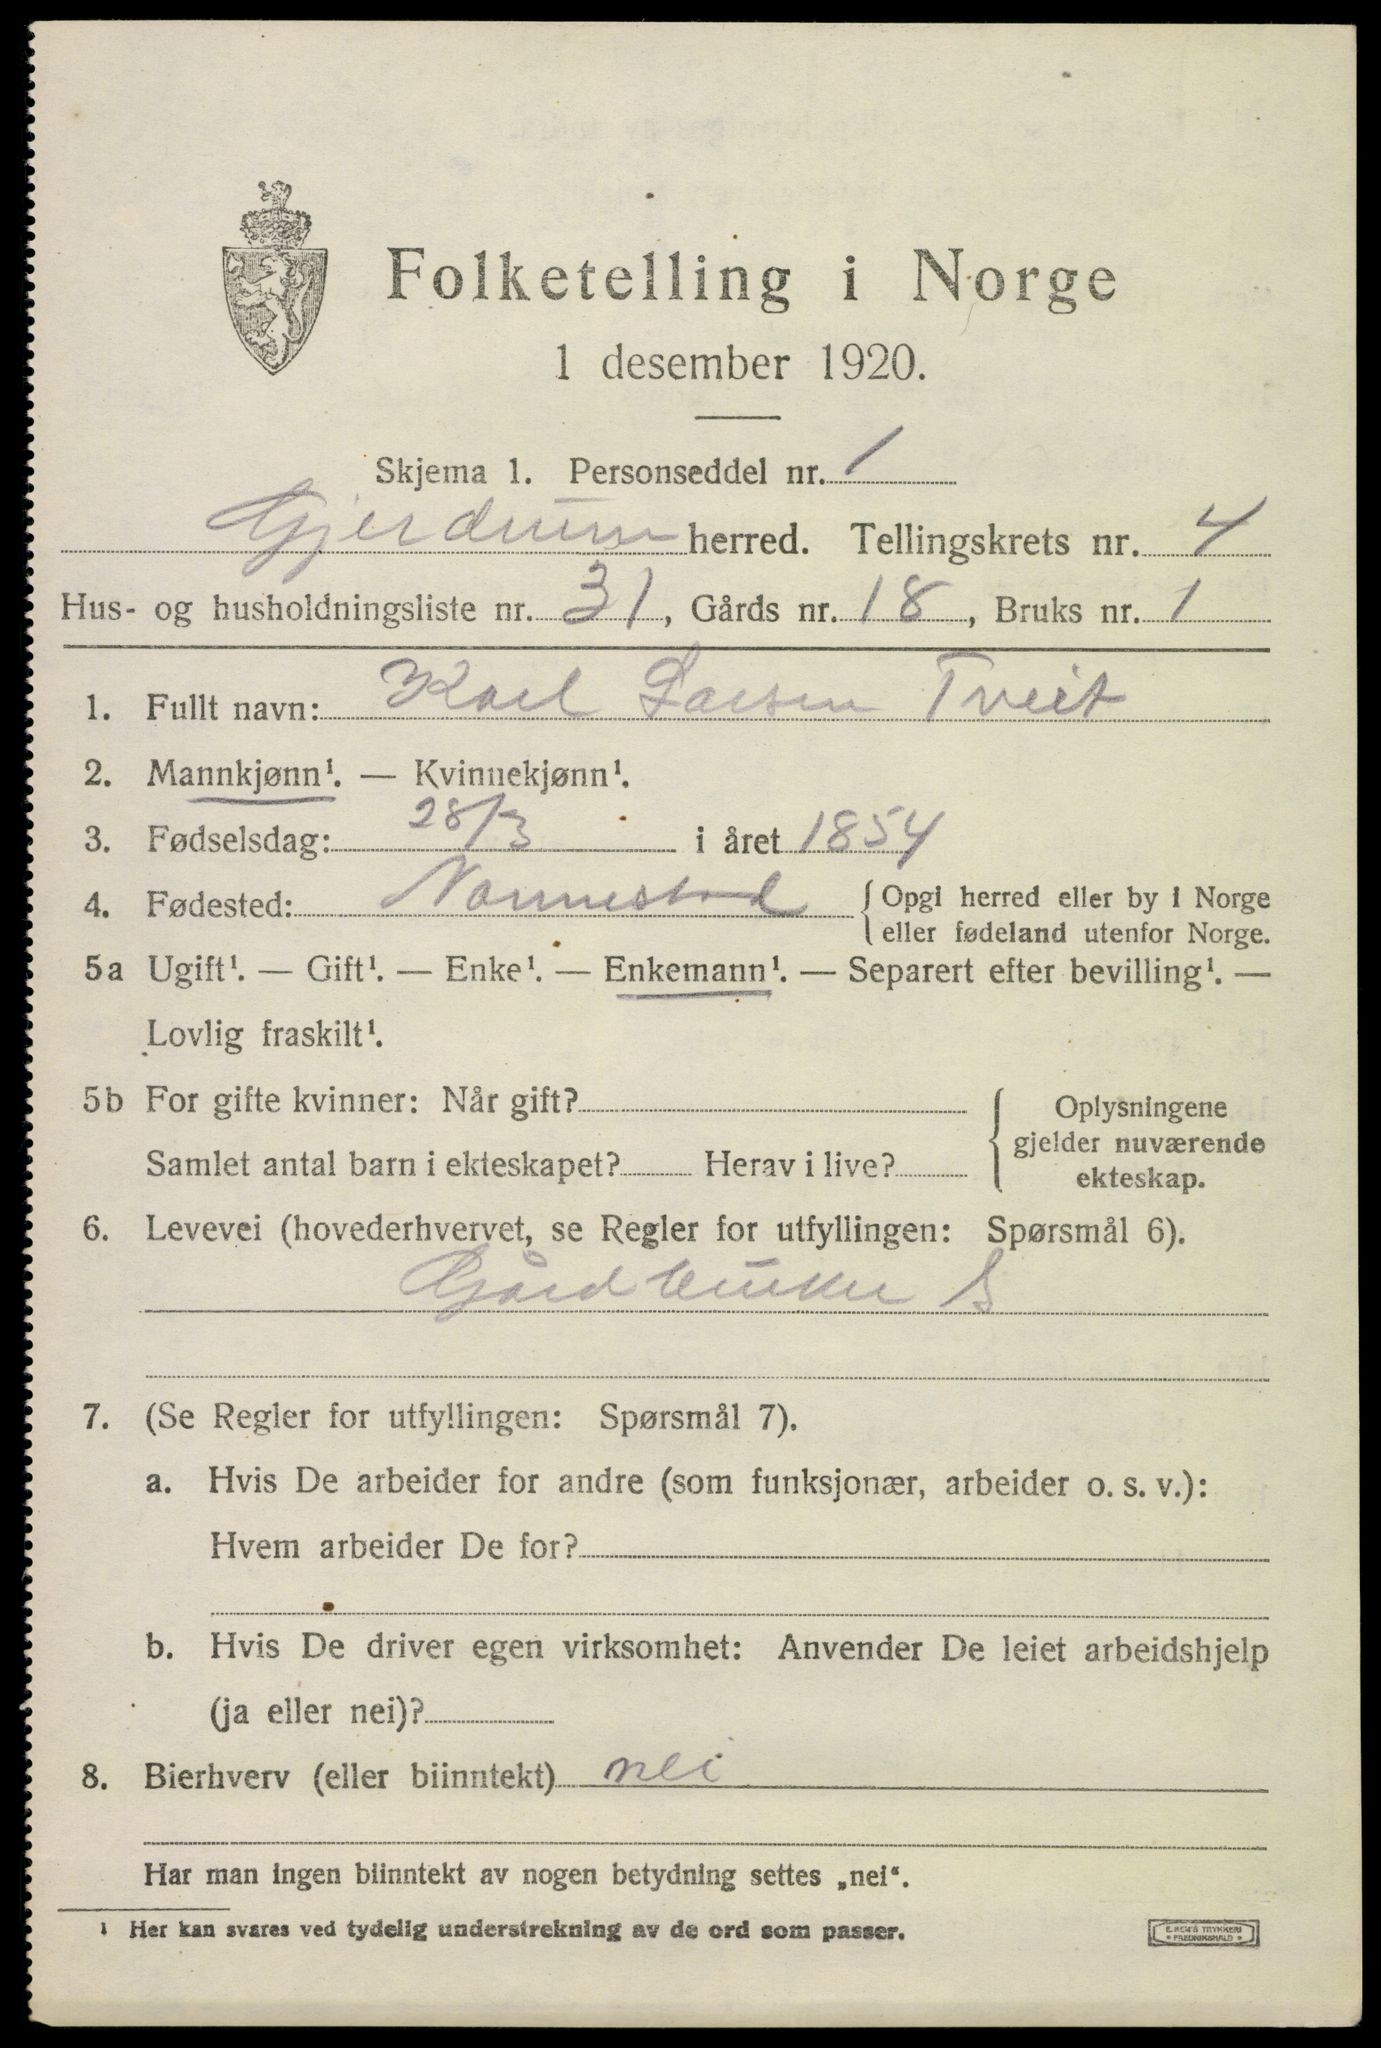 Folketelling i Norge
1 desember 1920.
Skjema 1. Personseddel nr. 1
Gjerdrum herred. Tellingskrets nr. 4
Hus- og husholdningsliste nr. 31, Gårds nr. 18, Bruks nr. 1
1. Fullt navn: Karl Larsen Tveit
2. Mannkjønn¹. — Kvinnekjønn¹.
3. Fødselsdag: 28/3 i året 1854
4. Fødested: Nannestad { Opgi herred eller by i Norge
eller fødeland utenfor Norge.
5a Ugift¹. — Gift¹. — Enke¹. — Enkemann¹. — Separert efter bevilling¹. —
Lovlig fraskilt¹.
5b For gifte kvinner: Når gift?
Samlet antal barn i ekteskapet? Herav i live?
{ Oplysningene
gjelder nuværende
ekteskap.
6. Levevei (hovederhvervet, se Regler for utfyllingen: Spørsmål 6).
Gårdbruker S
7. (Se Regler for utfyllingen: Spørsmål 7).
a. Hvis De arbeider for andre (som funksjonær, arbeider o. s. v.):
Hvem arbeider De for?
b. Hvis De driver egen virksomhet: Anvender De leiet arbeidshjelp
(ja eller nei)?
8. Bierhverv (eller biinntekt) nei
Har man ingen biinntekt av nogen betydning settes „nei“.
¹ Her kan svares ved tydelig understrekning av de ord som passer.
E. SEM'S TRYKKERI
• FREDRIKSHALD •